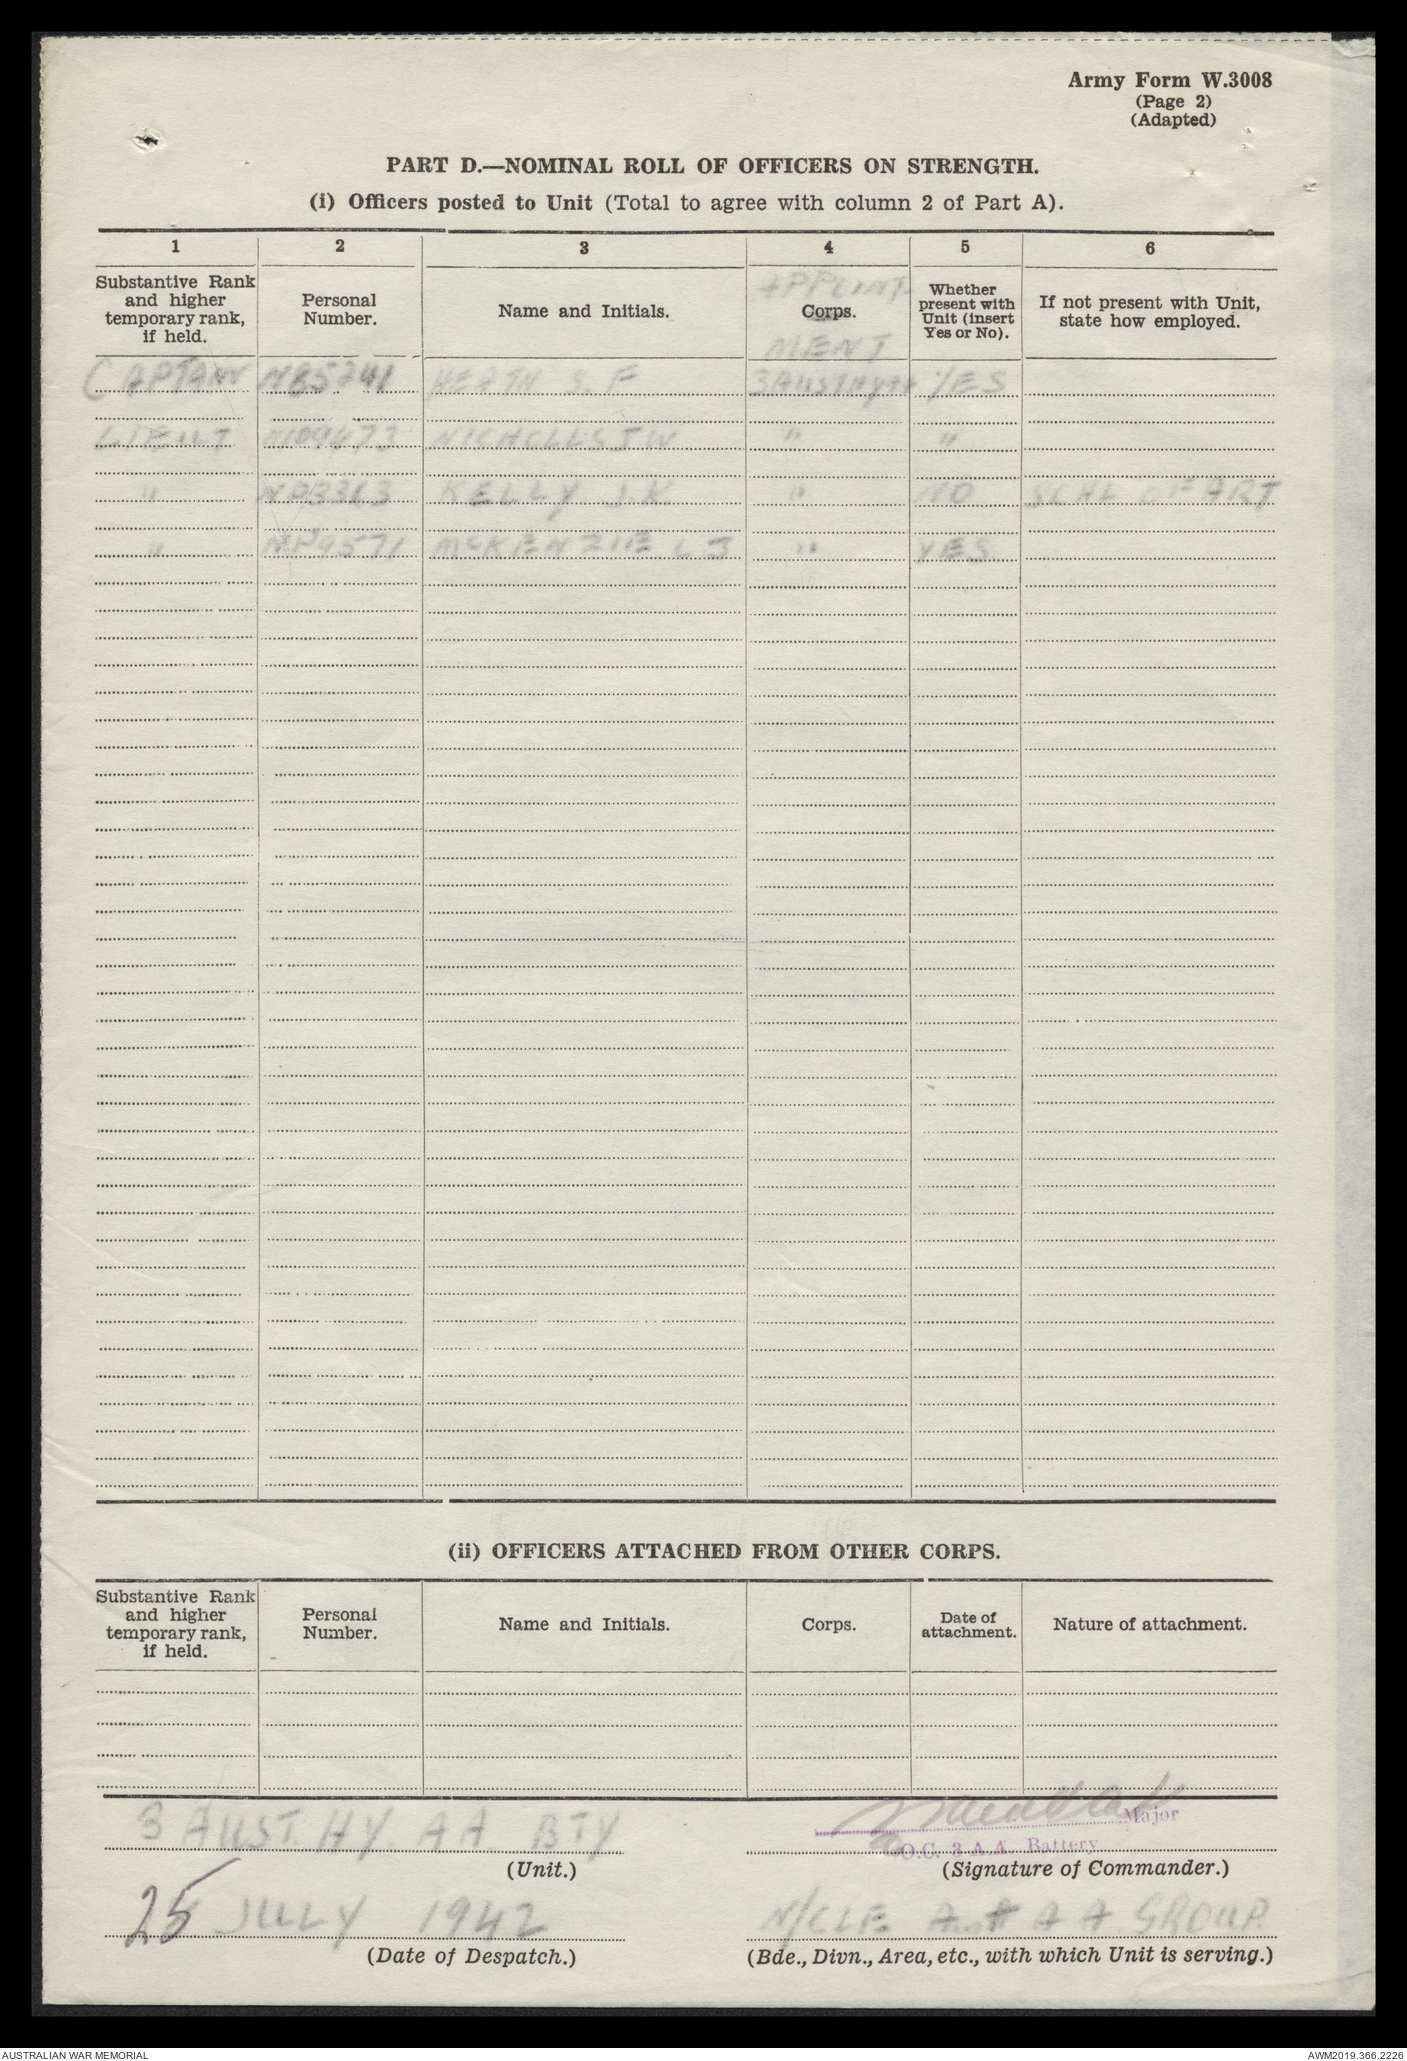 Army Form W.3008
(Page 2)
(Adapted)
PART D.—NOMINAL ROLL OF OFFICERS ON STRENGTH.
(i) Officers posted to Unit (Total to agree with column 2 of Part A).
1 2 3 4 5 6
Substantive Rank and higher temporary rank, if held.
Personal Number.
Name and Initials.
APPOINT
Corps.
MENT
Whether present with Unit (insert Yes or No).
If not present with Unit, state how employed.
CAPTAIN NB5241 HEATH S. F 3 AUST HY AA YES
LIEUT NICHOLLS J W " "
" KELLY J. K " NO SCHL OF ART
" NP9571 McKENZIE L J " YES
(ii) OFFICERS ATTACHED FROM OTHER CORPS.
Substantive Rank and higher temporary rank, if held.
Personal Number.
Name and Initials.
Corps.
Date of attachment.
Nature of attachment.
3 AUST. HY. AA BTY
Major
O.C. 3 A.A. Battery
(Unit.)
(Signature of Commander.)
25 JULY 1942
N/CLE A A GROUP.
(Date of Despatch.)
(Bde., Divn., Area, etc., with which Unit is serving.)
AUSTRALIAN WAR MEMORIAL
AWM2019.366.2226